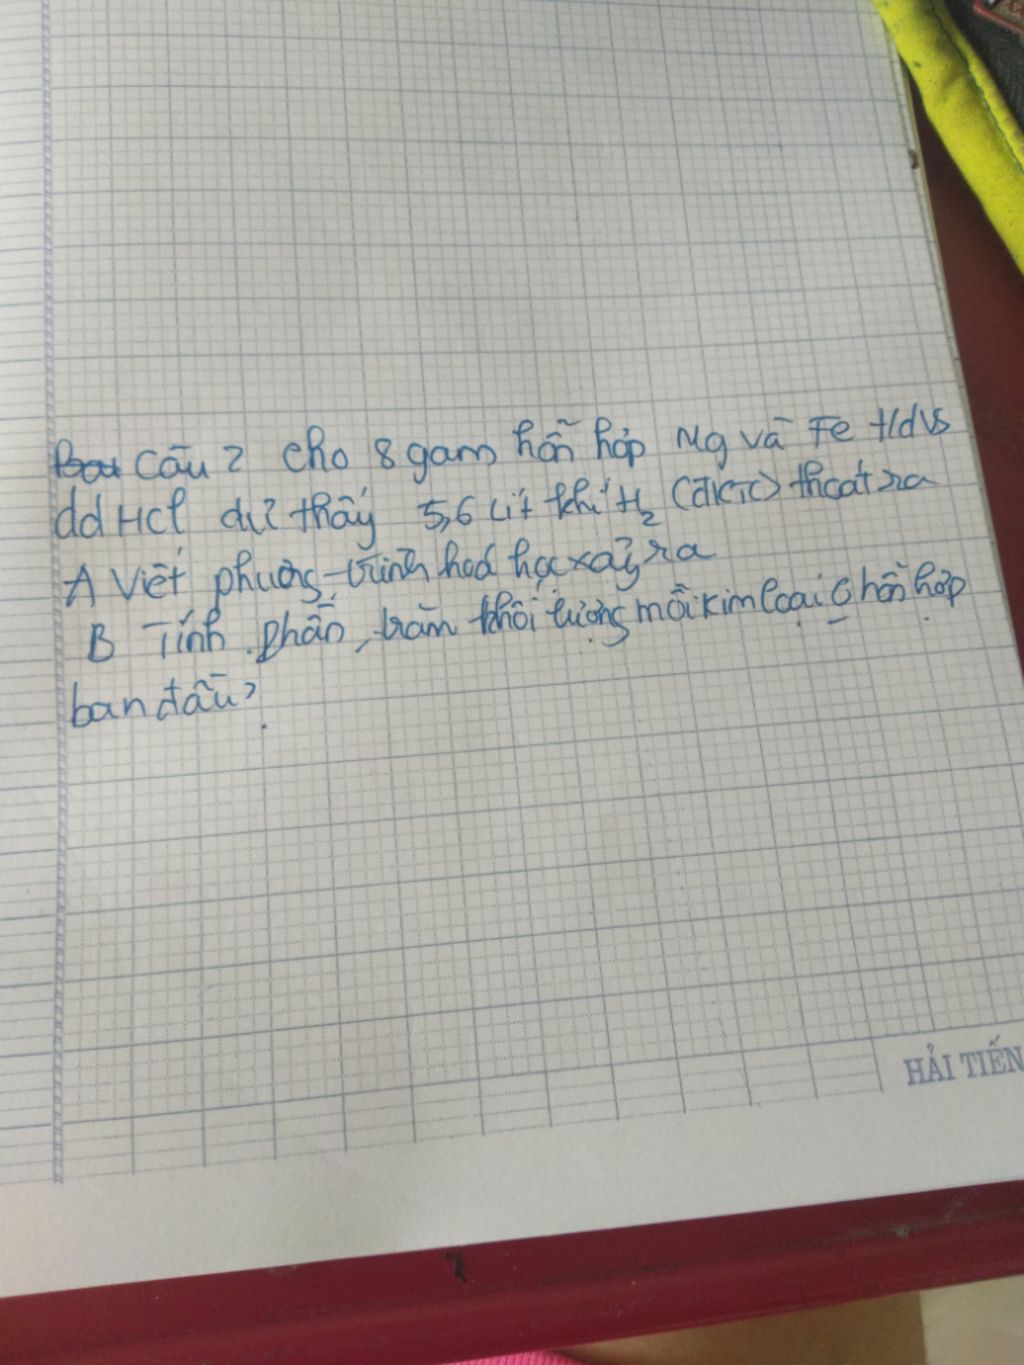 Câu 2 cho 8 gam hỗn hợp Mg và Fe t/dVS
dd HCl dư thấy 5,6 Lít khí H₂ (ĐKTC) thoát ra
A Viết phương trình hoá học xảy ra
B Tính phần trăm khối lượng mỗi kim loại hỗn hợp
ban đầu?
HẢI TIẾN